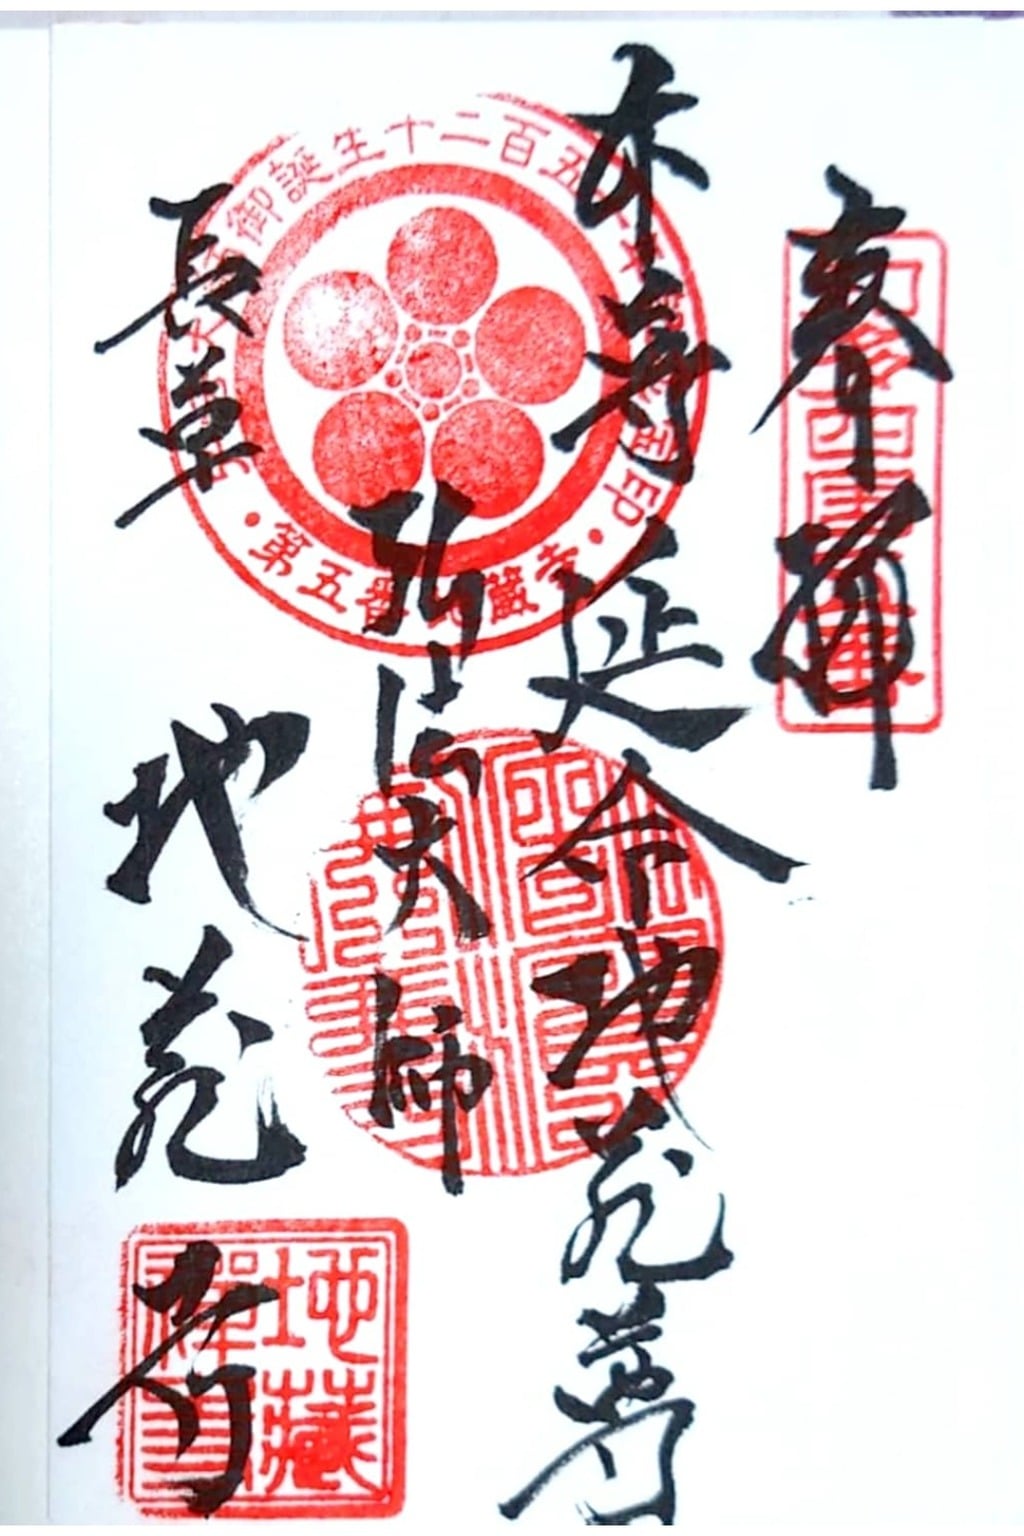 奉拝
本尊 延命地蔵尊
弘法大師
長草 地蔵寺
御誕生千二百五十年
印
第五番地蔵寺
地藏
禅寺